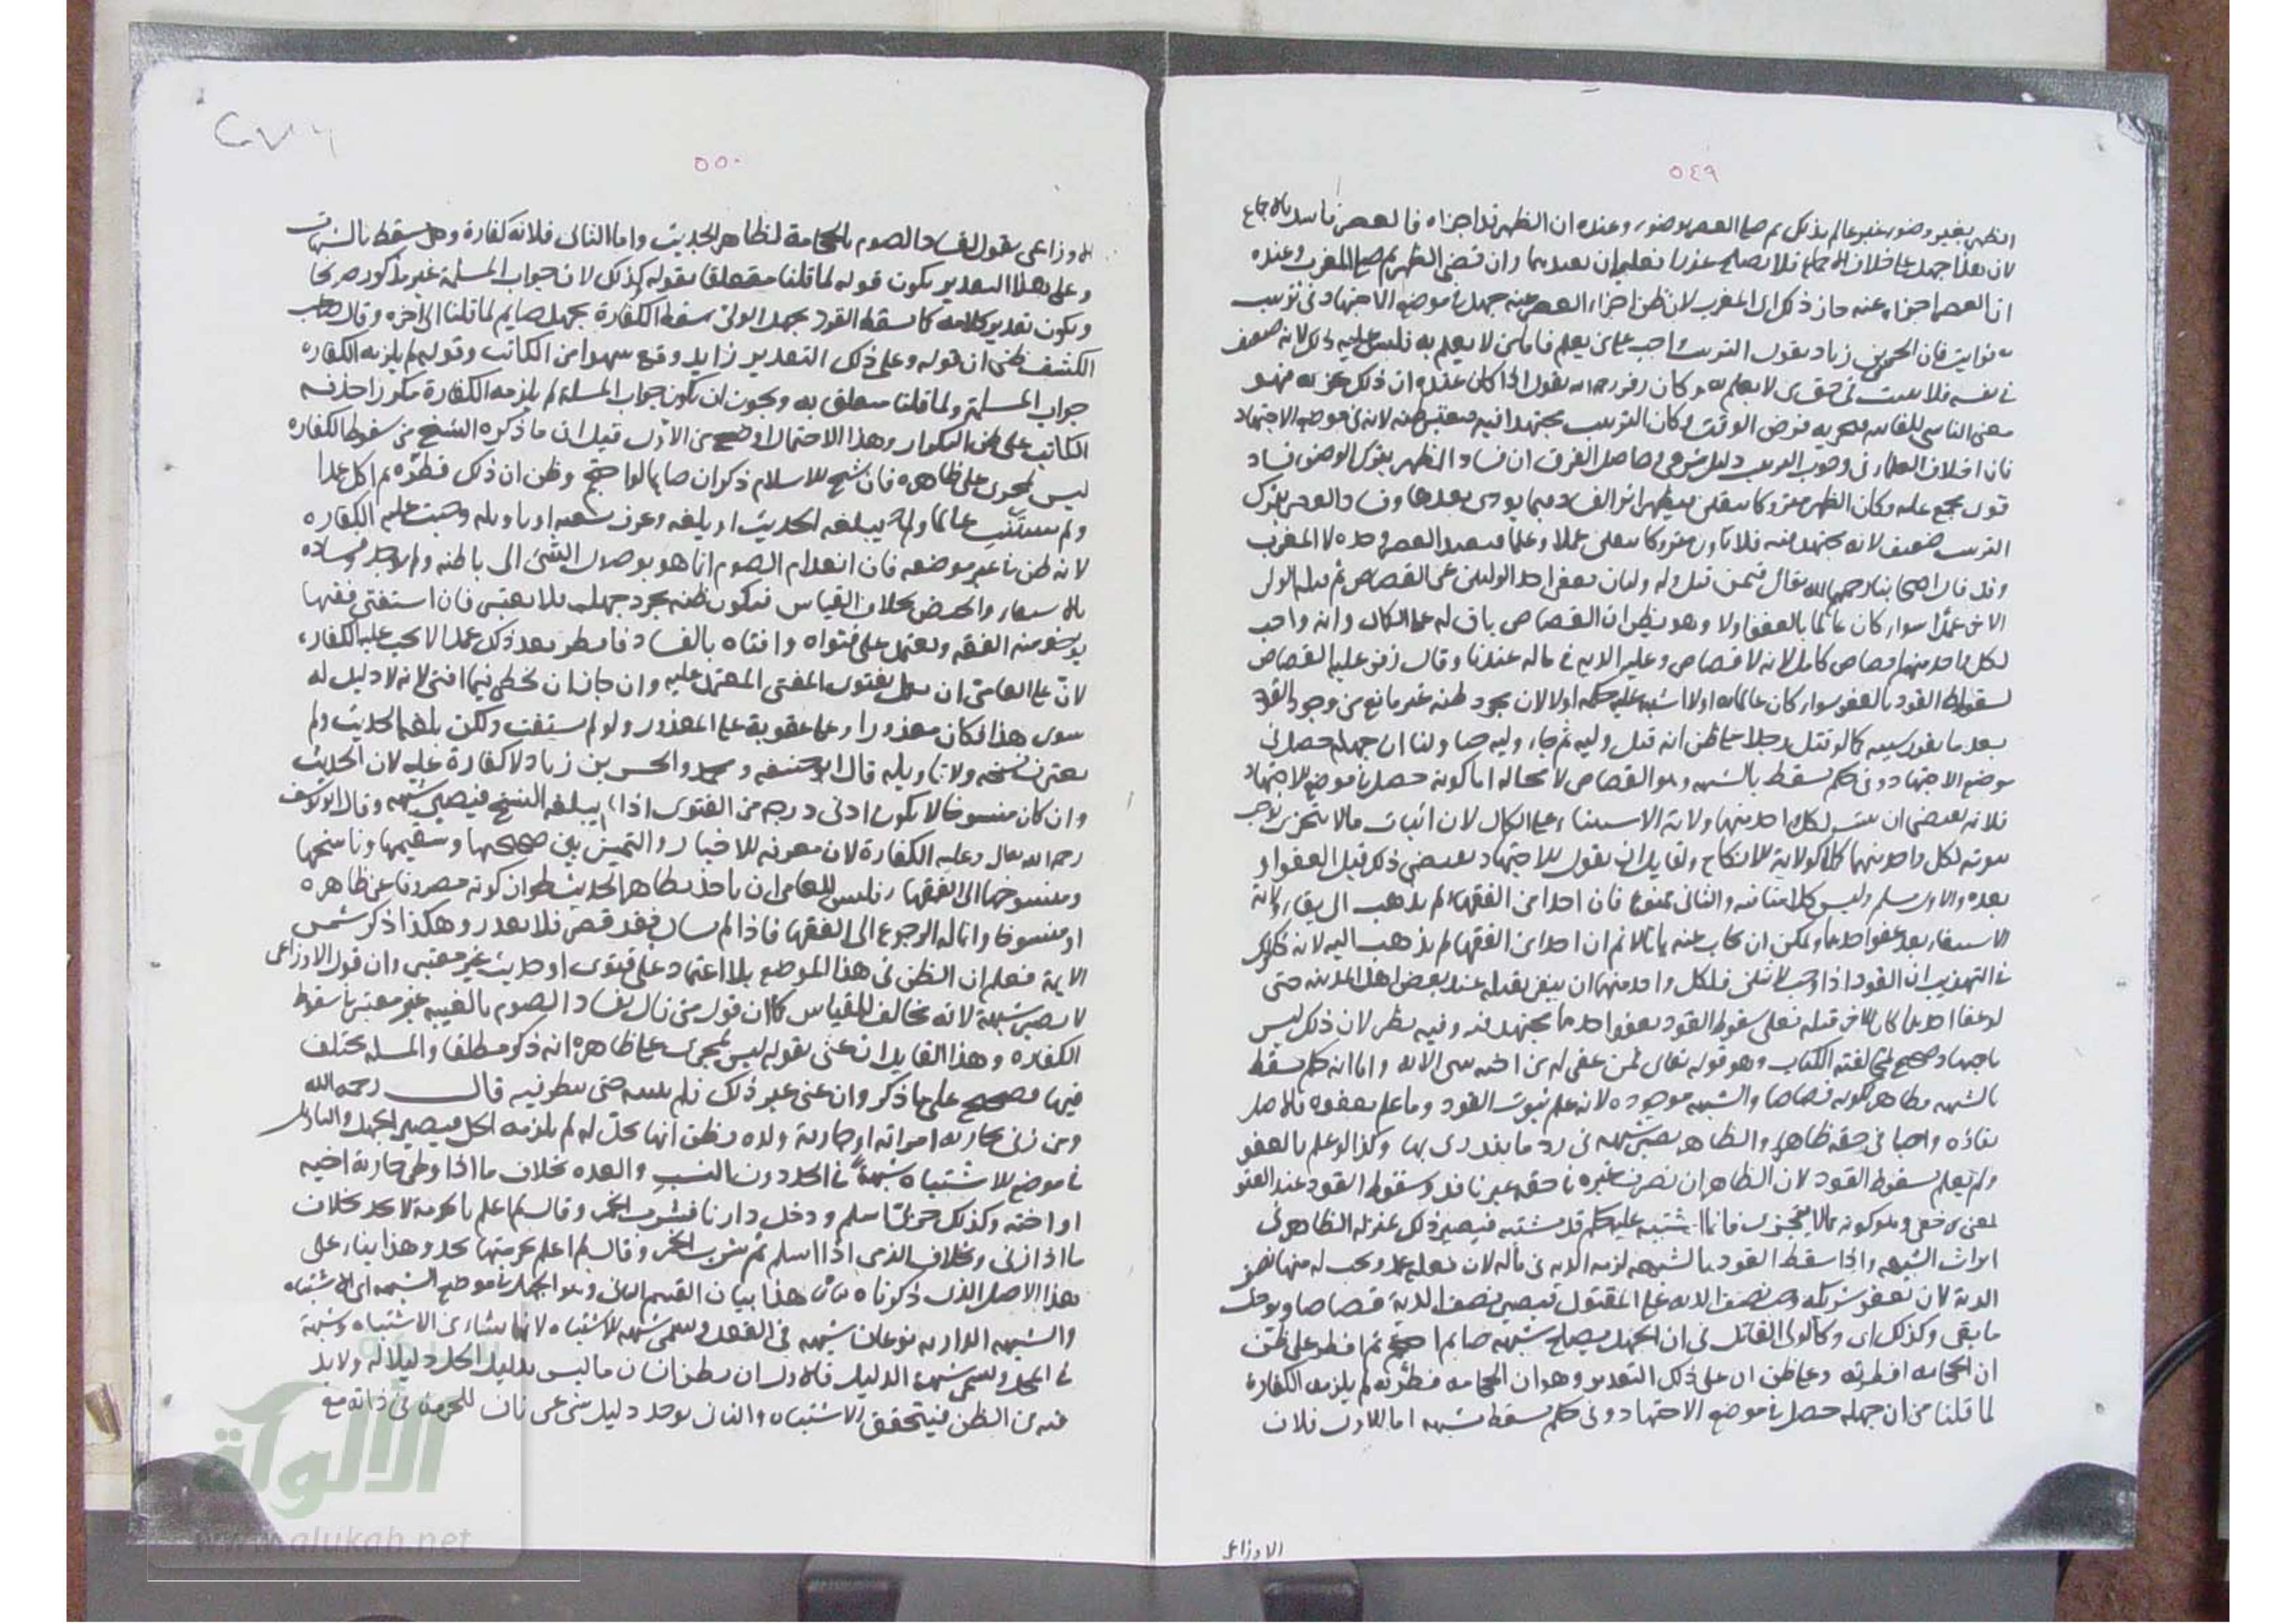 ٥٤٩
الظهر بغير وضوء غير عالم بذلك ثم صلى العصر بوضوء وعنده ان الظهر قد اجزاه فالعصر فاسد بالاجماع
لان هذا جهل على خلاف الاجماع فلا يصلح عذرا فعليه ان يعيدهما وان قضى الظهر ثم صلى المغرب وعنده
ان العصر اجزاء عنه جاز ذلك اى المغرب لان ظن اجزاء العصر عنه جهل فى موضع الاجتهاد فى ترتيب
فان الحسن بن زياد يقول الترتيب واجب على من يعلم فاما من لا يعلم به فليس عليه ذلك لانه ضعيف
فى نفسه فلا يثبت فى حق من لا يعلم به وكان زفر رحمه الله يقول اذا كان عنده ان ذلك يجزيه فهو
معنى الناسى للفائتة فيجزيه فرض الوقت وكان الترتيب مجتهدا فيه فيعتبر ظنه لانه فى موضع الاجتهاد
فان اختلاف العلماء فى وجوب الترتيب دليل شرعى وحاصل الفرق ان فساد الظهر بترك الوضوء فساد
قوى مجمع عليه وكان الظهر متروكا بيقين فيظهر اثر الفساد فيما يودى بعدها وفساد العصر بترك
الترتيب ضعيف لانه مجتهد فيه فلا يكون متروكا بيقين عملا وعلما فيعيد العصر وحده لا المغرب
وقد قال اصحابنا رحمهم الله تعالى فيمن قتل وله وليان فعفى احد الوليين عن القصاص ثم قتله الولى
الاخر عمدا سواء كان عالما بالعفو اولا وهو يظن ان القصاص باق له على الكمال وانه واجب
لكل واحد منهما قصاص كامل لانه لا قصاص وعليه الدية فى ماله عندنا وقال زفر عليه القصاص
لسقوط القود بالعفو سواء كان عالما به اولا اشتبه عليه حكمه اولا لان مجرد ظنه غير مانع من وجوب القود
بعد ما تقرر سببه كما لو قتل رجلا على ظن انه قتل وليه ثم جاء وليه حيا ولنا ان جهله حصل فى
موضع الاجتهاد وفى حكم يسقط بالشبهة وهو القصاص لا محالة اما كونه حصل فى موضع الاجتهاد
فلانه يقتضى ان يثبت لكل واحد منهما ولاية الاستيفاء على الكمال لان اثبات ما لا يتجزى يوجب
ثبوته لكل واحد منهما كملا كولاية الانكاح ولقايل ان يقول الاجتهاد يقتضى ذلك قبل العفو او
بعده والاول مسلم وليس كلامنا فيه والثانى ممنوع فان احدا من الفقهاء لم يذهب الى بقاء ولاية
الاستيفاء بعد عفو احدهما ويمكن ان يجاب عنه بانا لا نم ان احدا من الفقهاء لم يذهب اليه لانه ذكر
فى التهذيب ان القود اذا وجب لاثنين فلكل واحد منهما ان ينفرد بقتله عند بعض اهل المدينة حتى
لو عفا احدهما كان للاخر قتله فعلى سقوط القود بعفو احدهما مجتهد فيه وفيه نظر لان ذلك ليس
باجتهاد صحيح لمخالفته الكتاب وهو قوله تعالى فمن عفى له من اخيه شى الاية واما انه حكم يسقط
بالشبهة فظاهر لكونه قصاصا والشبهة موجودة لانه علم ثبوت القود وما علم بعفوه فالاصل
بقاؤه واجبا فى حقه ظاهرا والظاهر يصير شبهة فى رد ما يندرى بها وكذا لو علم بالعفو
ولم يعلم بسقوط القود لان الظاهر ان تصرف غيره فى حقه غير نافذ وسقوط القود عند العفو
لمعنى خفى وهو كونه مما لا يتجزى فانما اشتبه عليه حكم قد يشتبه فيصير ذلك بمنزلة الظاهر فى
ايراث الشبهة واذا سقط القود بالشبهة لزمه الدية فى ماله لان فعله عمد ويحسب له منها نصف
الدية لان بعفو شريكه وجب نصف الدية على المقتول فيصير نصف الدية قصاصا ويودى
ما بقى وكذلك اى وكالولى القاتل فى ان الجهل يصلح شبهة صايم احتجم ثم افطر على ظن
ان الحجامة افطرته وعلى ظن ان على ذلك التقدير وهو ان الحجامة فطرته لم يلزمه الكفارة
لما قلنا من ان جهله حصل فى موضع الاجتهاد وفى حكم يسقط بشبهة اما الاول فلان
الاوزاعى
٥٥٠
الاوزاعى يقول بفساد الصوم بالحجامة لظاهر الحديث واما الثانى فلانه كفارة وهى تسقط بالشبهات
وعلى هذا التقدير يكون قوله لما قلنا متعلقا بقوله كذلك لان جواب المسئلة غير مذكور صريحا
ويكون تقدير كلامه كما سقط القود بجهل الولى سقط الكفارة بجهل صايم لما قلنا الى اخره وقال صاحب
الكشف ظنى ان قوله وعلى ذلك التقدير زايد وقع سهوا من الكاتب وقوله لم يلزمه الكفارة
جواب المسئلة ولما قلنا متعلق به ويجوز ان يكون جواب المسئلة لم يلزمه الكفارة مكررا حذفه
الكاتب على ظن التكرار وهذا الاحتمال اوضح من الاول قيل ان ما ذكره الشيخ من سقوط الكفارة
ليس بمجرى على ظاهره فان شيخ الاسلام ذكر ان صايما لو احتجم وظن ان ذلك فطره ثم اكل عمدا
ولم يستفت عالما ولم يبلغه الحديث او بلغه وعرف نسخه او تاويله وجبت عليه الكفارة
لانه ظن فى غير موضعه فان انعدام الصوم انما هو بوصول الشى الى باطنه ولم يوجد وفساده
بالاستقاء والحيض بخلاف القياس فيكون ظنه مجرد جهل فلا يعتبر فان استفتى فقيها
يوخذ منه الفقه ويعتمد على فتواه وافتاه بالفساد فافطر بعد ذلك عمدا لا يجب عليه الكفارة
لان على العامى ان يعمل بفتوى المفتى المعتمد عليه وان جاز ان يخطى فيما افتى لانه لا دليل له
سوى هذا فكان معذورا ولا عقوبة على المعذور ولو لم يستفت ولكن بلغه الحديث ولم
يعرف نسخه ولا تاويله قال ابو حنيفة ومحمد والحسن بن زياد لا كفارة عليه لان الحديث
وان كان منسوخا لا يكون ادنى درجة من الفتوى اذا لم يبلغه النسخ فيصير شبهة وقال ابو يوسف
رحمه الله تعالى وعليه الكفارة لان معرفة الاخبار والتمييز بين صحيحها وسقيمها وناسخها
ومنسوخها الى الفقهاء فليس للعامى ان ياخذ بظاهر الحديث لجواز كونه مصروفا عن ظاهره
او منسوخا وانما له الرجوع الى الفقها فاذا لم يسال فقد قصر فلا يعذر وهكذا ذكر شمس
الايمة فعلم ان الظن فى هذا الموضع بلا اعتماد على فتوى او حديث غير معتبر وان قول الاوزاعى
لا يصير شبهة لانه مخالف للقياس كما ان قول من قال بفساد الصوم بالغيبة غير معتبر فى سقوط
الكفارة وهذا القايل ان عنى بقوله ليس بمجرى على ظاهره انه ذكر مطلقا والمسئلة مختلف
فيها فصحيح على ما ذكر وان عنى غير ذلك فلم يبينه حتى ينظر فيه قال رحمه الله
ومن زنى بجارية امراته او جارية ولده وظن انها تحل له لم يلزمه الحد فيصير الجهل والتاويل
فى موضع الاشتباه شبهة فى الحد دون النسب والعدة بخلاف ما اذا وطى جارية اخيه
او اخته وكذلك حربى اسلم ودخل دارنا فشرب الخمر وقال لم اعلم بالحرمة لا يحد بخلاف
ما اذا زنى وبخلاف الذمى اذا اسلم ثم شرب الخمر وقال لم اعلم بحرمتها يحد وهذا بناء على
هذا الاصل الذى ذكرناه هذا بيان القسم الثانى وهو الجهل فى موضع الشبهة اى الاشتباه
والشبهة الدارية نوعان شبهة فى الفعل ويسمى شبهة الاشتباه لانها تنشاء من الاشتباه وشبهة
فى المحل ويسمى شبهة الدليل فالاول ان يظن انسان ما ليس بدليل الحل دليلا له ولا بد
فيه من الظن فيتحقق الاشتباه والثانى يوجد دليل شرعى ناف للحرمة فى ذاته مع
الألوكة
www.alukah.net